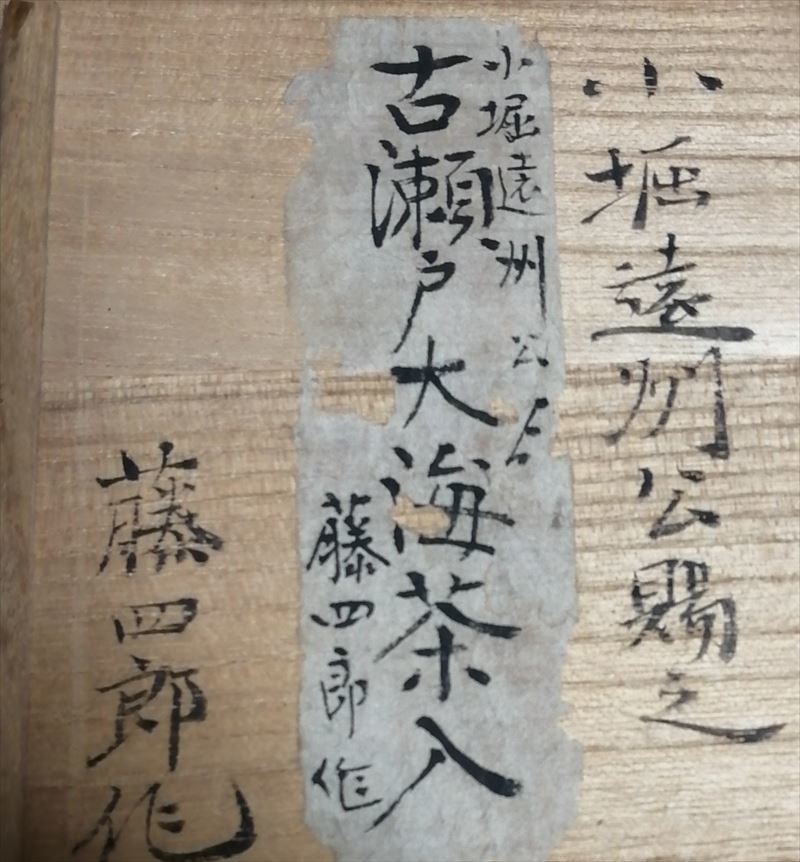 小堀遠州公賜之
小堀遠洲公ヨ
古瀬戸大海茶入
藤四郎作
藤四郎作